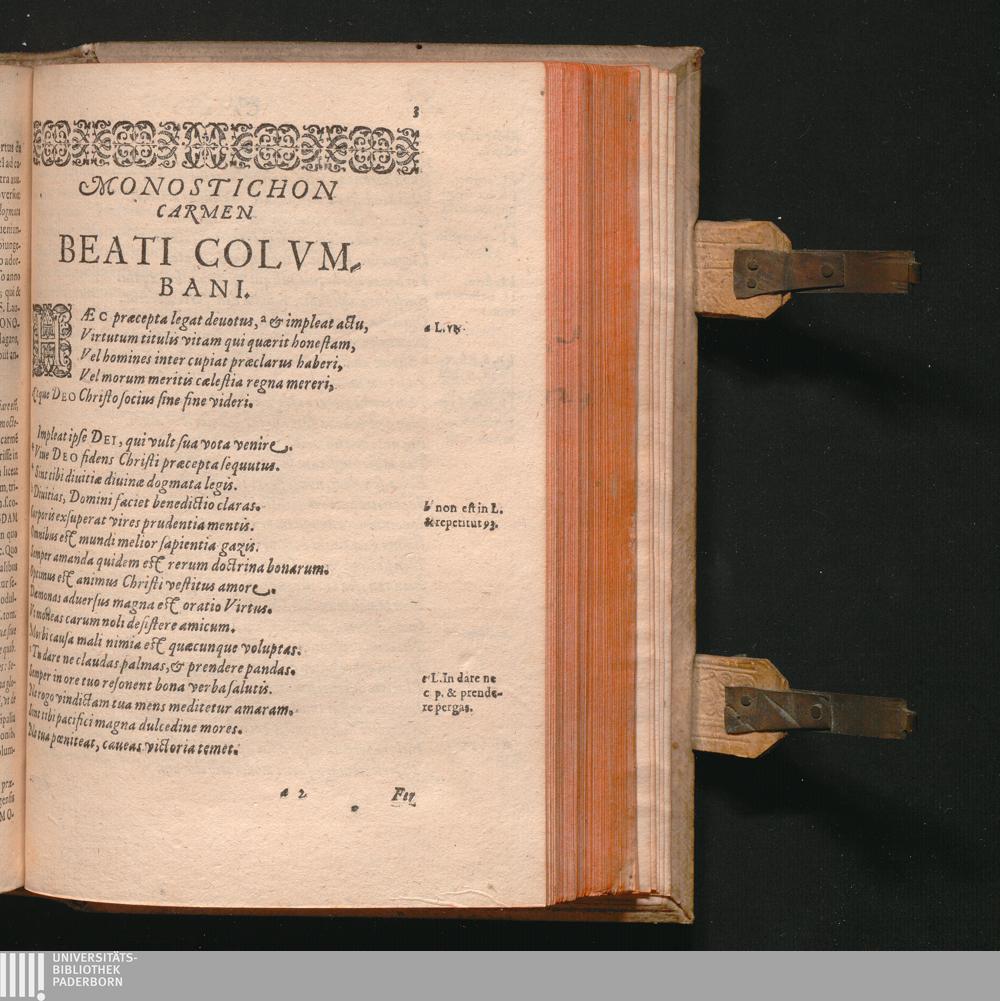 3
MONOSTICHON
CARMEN
BEATI COLVM-
BANI.
HÆC præcepta legat deuotus, a & impleat actu,
Virtutum titulis vitam qui quærit honestam,
Vel homines inter cupiat præclarus haberi,
Vel morum meritis cælestia regna mereri,
Eque DEO Christo socius sine fine videri.
Impleat ipse DEI, qui vult sua vota venire.
Viue DEO fidens Christi præcepta sequutus.
Sint tibi diuitiæ diuinæ dogmata legis.
Diuitias, Domini faciet benedictio claras.
Corporis exsuperat vires prudentia mentis.
Omnibus est mundi melior sapientia gazis.
Semper amanda quidem est rerum doctrina bonarum.
Optimus est animus Christi vestitus amore.
Dæmonas aduersus magna est oratio Virtus.
Vt moneas carum noli desistere amicum.
Morbi causa mali nimia est quæcunque voluptas.
Tu dare ne claudas palmas, & prendere pandas.
Semper in ore tuo resonent bona verba salutis.
Ne rogo vindictam tua mens meditetur amaram.
Sint tibi pacifici magna dulcedine mores.
Ne tua pœniteat, caueas victoria temet.
a L. vt
b non est in L.
& repetitut 93.
c L. In dare ne
c p. & prende-
re pergas.
a 2
UNIVERSITÄTS-
BIBLIOTHEK
PADERBORN